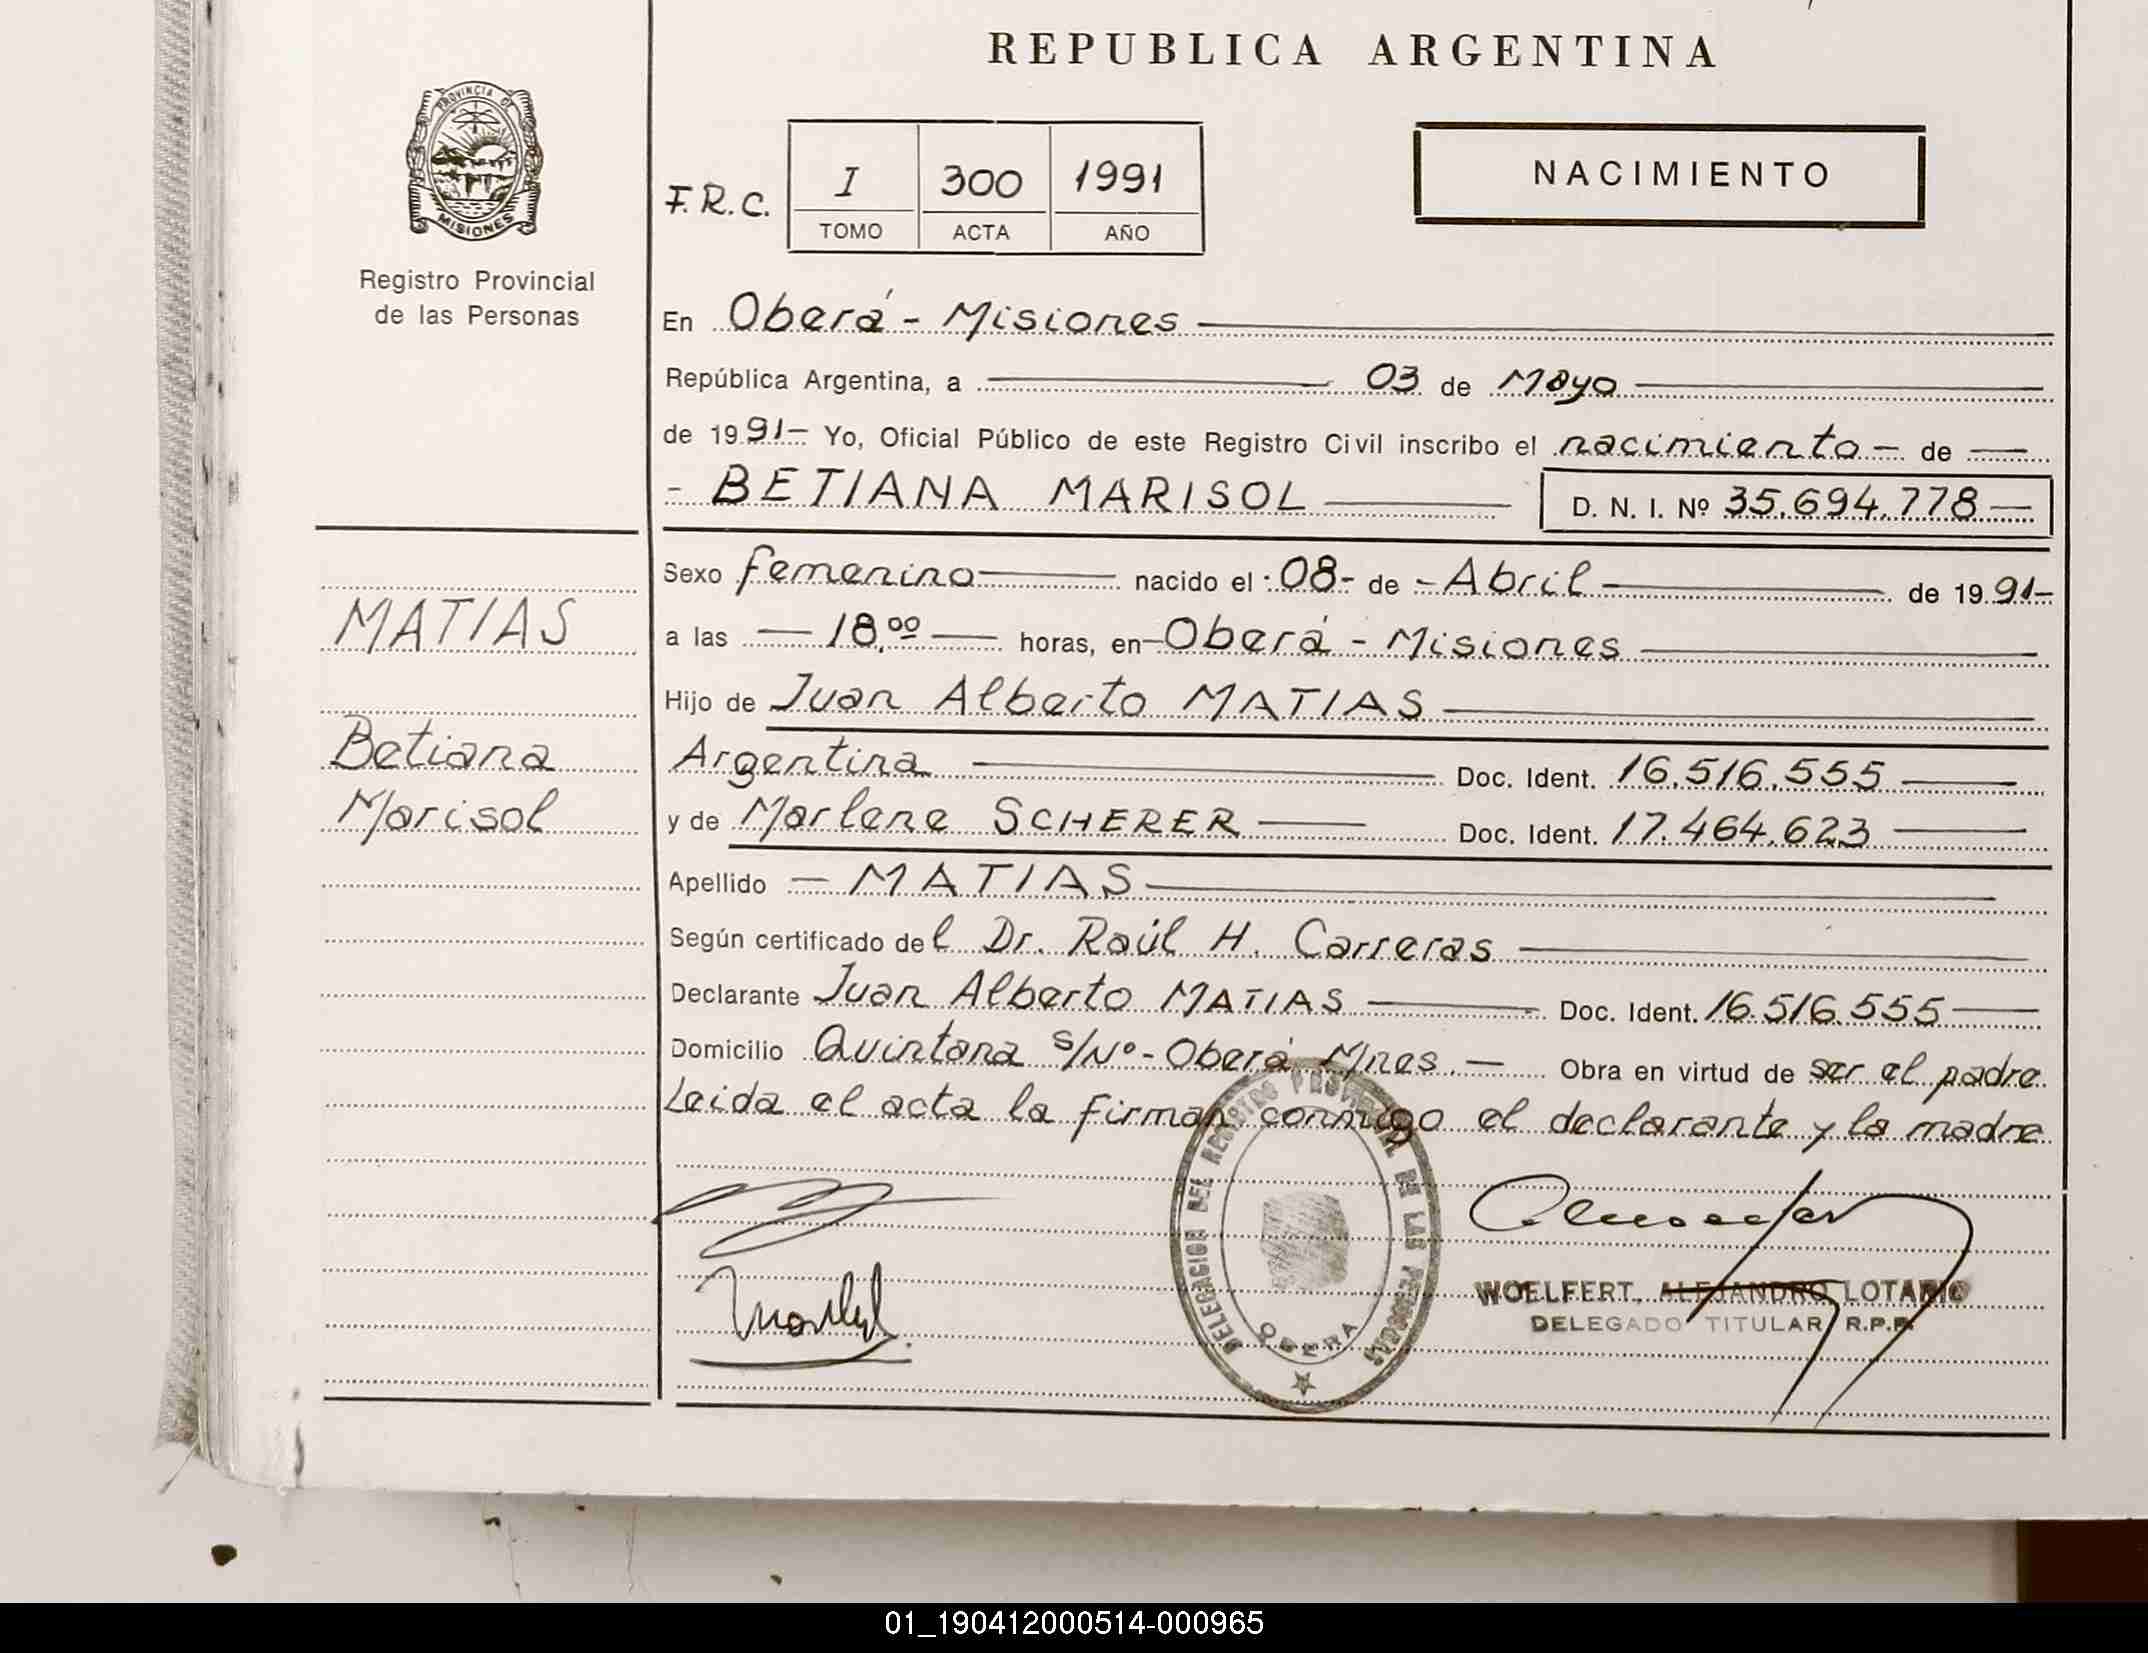 REPUBLICA ARGENTINA
PROVINCIA DE
MISIONES
Registro Provincial
de las Personas
F.R.C.
I 300 1991
TOMO ACTA AÑO
NACIMIENTO
En Oberá - Misiones
República Argentina, a 03 de Mayo
de 1991- Yo, Oficial Público de este Registro Civil inscribo el nacimiento - de
- BETIANA MARISOL D. N. I. Nº 35.694.778
Sexo femenino nacido el 08- de - Abril de 1991-
a las 18,00 horas, en Oberá - Misiones
Hijo de Juan Alberto MATIAS
Argentina Doc. Ident. 16.516.555
y de Marlene SCHERER Doc. Ident. 17.464.623
Apellido - MATIAS
Según certificado del Dr. Raúl H. Carreras
Declarante Juan Alberto MATIAS Doc. Ident. 16.516.555
Domicilio Quintana s/Nº - Oberá Mnes. - Obra en virtud de ser el padre
Leida el acta la firman conmigo el declarante y la madre
MATIAS
Betiana
Marisol
DELEGACION DEL REGISTRO PROVINCIAL DE LAS PERSONAS
OBERA
WOELFERT, ALEJANDRO LOTARIO
DELEGADO TITULAR R.P.P.
01_190412000514-000965